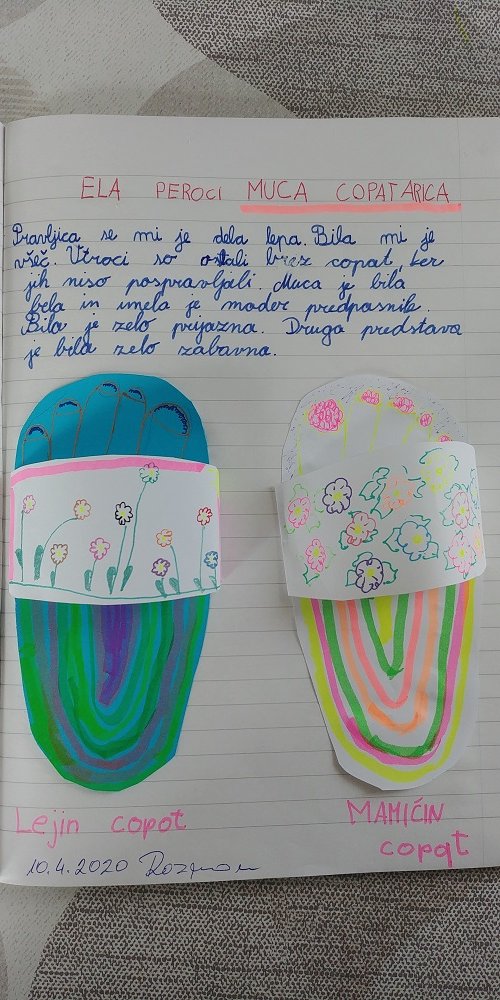 ELA PEROCI MUCA COPATARICA
Pravljica se mi je dela lepa. Bila mi je
všeč. Otroci so ostali brez copat, ker
jih niso pospravljali. Muca je bila
bela in imela je moder predpasnik.
Bila je zelo prijazna. Druga predstava
je bila zelo zabavna.
Lejin copat
MAMIČIN
copat
10.4.2020